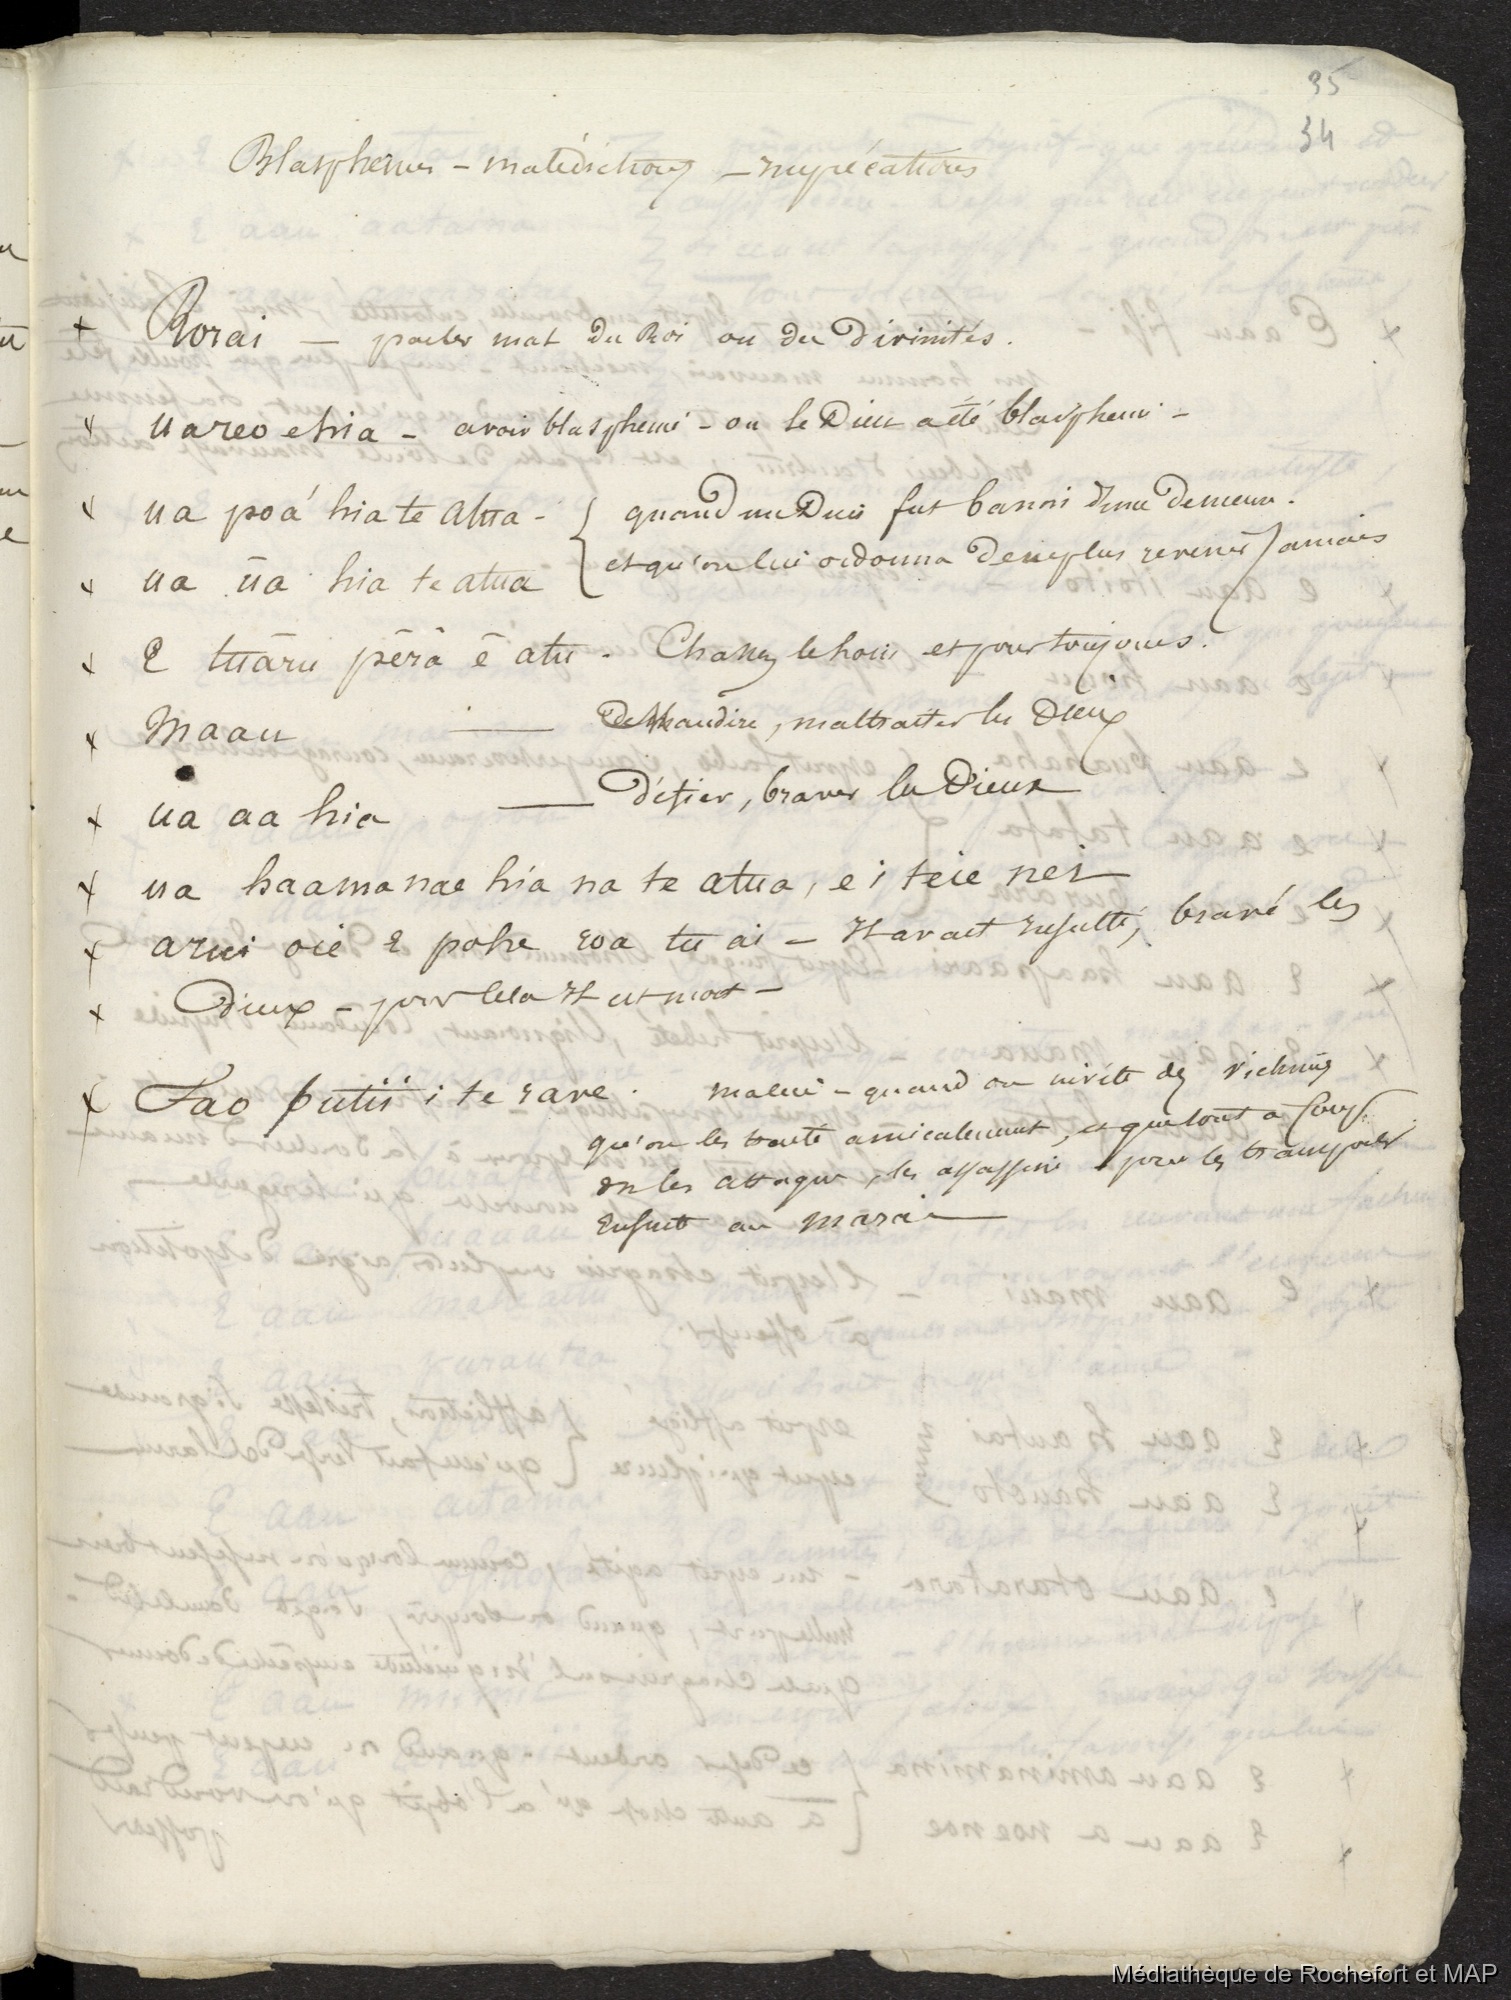 35
34
Blasphemes - malédictions - imprécations
x Rorai — parler mal du Roi ou des Divinités.
x uareo ehia - avoir blasphemé - ou le Dieu a été blasphemé -
x ua poá hia te atua - { quand un Dieu fut banni d'une demeure.
x ua ūa hia te atua { et qu'on lui ordonna de ne plus revenir jamais
x E tuāru pērā ē atu - Chassez le hors et pour toujours.
x Maau — Maudire, maltraiter les Dieux
x ua aa hia — Défier, braver les Dieux
x ua haamanae hia na te atua, e i teie nei
x arui oie E pohe roa tu ai - Il avait insulté, bravé les
x Dieux - pour cela Il est mort -
x Tao putii i te rave. - quand on invite des
qu'on les traite amicalement, et que tout à coup
on les attaque, les assassine pour les transporter
Ensuite au marai —
Médiathèque de Rochefort et MAP